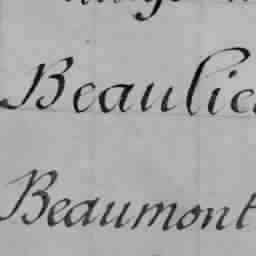 Beaulie
Beaumont